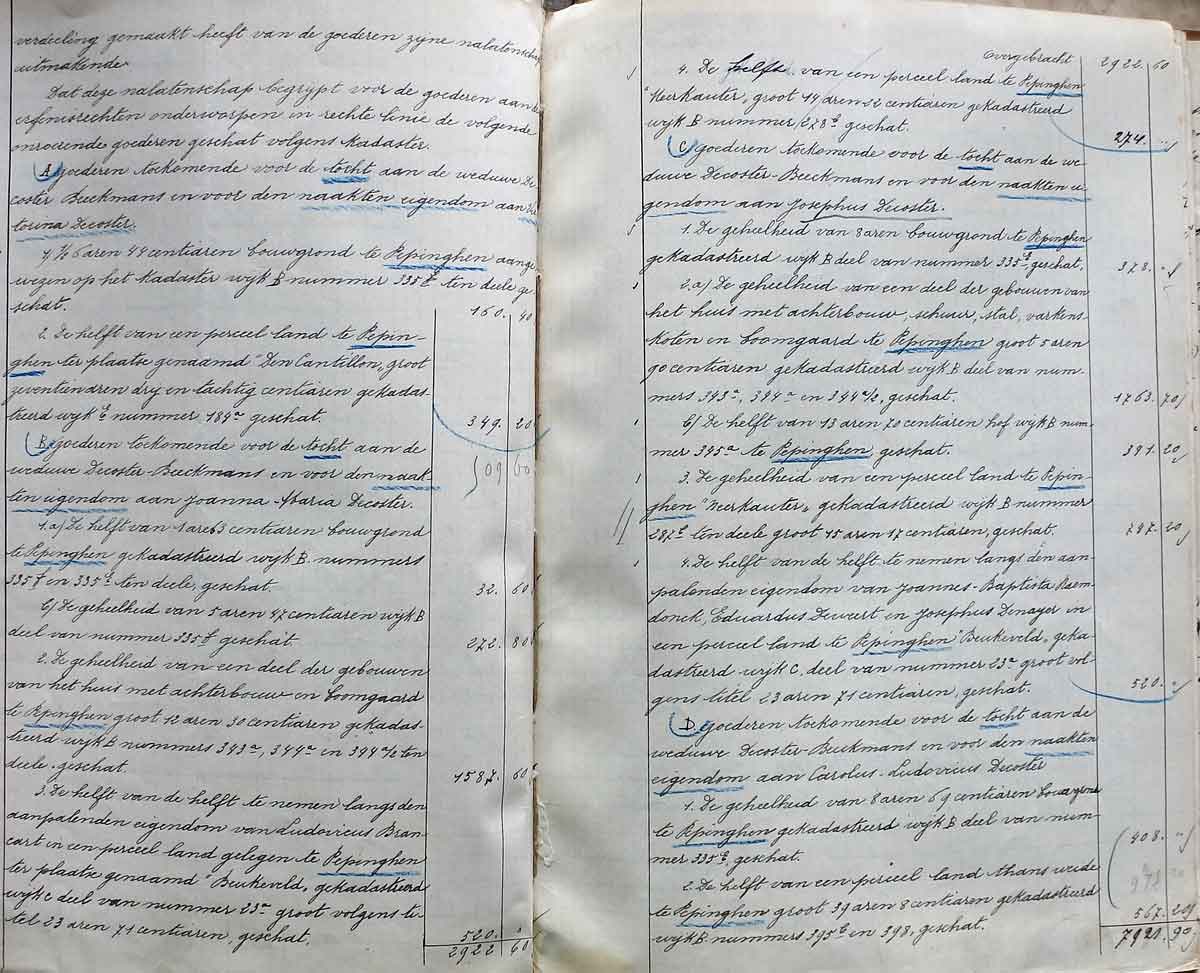 verdeeling gemaakt heeft van de goederen zijne nalatenschap
uitmakende.
Dat deze nalatenschap begrypt voor de goederen aan de
erfenisrechten onderworpen in rechte linie de volgende
onroerende goederen geschat volgens Kadaster.
A goederen toekomende voor de tocht aan de weduwe De
coster Beeckmans en voor den naakten eigendom aan Vic
torina Decoster.
1/ 1/2 6 aren 44 centiaren bouwgrond te Pepinghen aange
wezen op het Kadaster wijk B nummer 335 ten deele ge
schat. 160. 40
2. De helft van een perceel land te Pepin-
ghen ter plaatse genaamd "Den Cantillon, groot
zeventien aren dry en tachtig centiaren gekadas-
treerd wijk nummer 184a geschat. 349. 20
B. goederen toekomende voor de tocht aan de
weduwe Decoster-Beeckmans en voor den naak 509 60
ten eigendom aan Joanna-Maria Decoster.
1.a) De helft van 1 are 63 centiaren bouwgrond
te Pepinghen gekadastreerd wijk B. nummers
335 en 335 ten deele, geschat. 32. 60
b/ De geheelheid van 5 aren 47 centiaren wijk B
deel van nummer 335 geschat. 272. 80
2. De geheelheid van een deel der gebouwen
van het huis met achterbouw en boomgaard
te Pepinghen groot 12 aren 30 centiaren gekadas-
treerd wijk B nummers 343a, 344a en 344a/2 ten
deele geschat. 1587. 60
3. De helft van de helft te nemen langs den
aanpalenden eigendom van Ludovicus Bran-
cart in een perceel land gelegen te Pepinghen
ter plaatse genaamd "Beukeveld, gekadastreerd
wijk C deel van nummer 23a groot volgens ti-
tel 23 aren 71 centiaren, geschat. 520. "
2922 60
Overgebracht 2922. 60
4. De helft van een perceel land te Pepinghen
"Neerkauter, groot 14 aren 52 centiaren gekadastreerd
wijk B nummer 278 geschat. 274. "
C goederen toekomende voor de tocht aan de we-
duwe Decoster-Beeckmans en voor den naakten ei-
gendom aan Josephus Decoster.
1. De geheelheid van 8 aren bouwgrond te Pepinghen
gekadastreerd wijk B deel van nummer 335 geschat. 378. "
2.a/ De geheelheid van een deel der gebouwen van
het huis met achterbouw, schuur, stal, varkens-
koten en boomgaard te Pepinghen groot 5 aren
90 centiaren gekadastreerd wijk B deel van num-
mers 343a, 344a en 344a/2, geschat. 1763. 70
b/ De helft van 13 aren 70 centiaren hof wijk B num-
mer 395a te Pepinghen geschat. 391. 20
3. De geheelheid van een perceel land te Pepin-
ghen "Neerkauter, gekadastreerd wijk B nummer
282 ten deele groot 15 aren 17 centiaren, geschat. 747. 20
4. De helft van de helft te nemen langs den aan-
palenden eigendom van Joannes-Baptista Raem-
donck, Eduardus Dewert en Josephus Denayer in
een perceel land te Pepinghen "Beukeveld, geka-
dastreerd wijk C, deel van nummer 23a groot vol-
gens titel 23 aren 71 centiaren, geschat. 520. "
D goederen toekomende voor de tocht aan de
weduwe Decoster-Beeckmans en voor den naakten
eigendom aan Carolus-Ludovicus Decoster
1. De geheelheid van 8 aren 69 centiaren bouwgrond
te Pepinghen gekadastreerd wijk B deel van num-
mer 335, geschat. 408. "
2. De helft van een perceel land thans weide
te Pepinghen groot 39 aren 8 centiaren gekadastreerd
wijk B. nummers 395 en 398, geschat. 567. 20
7921. 90